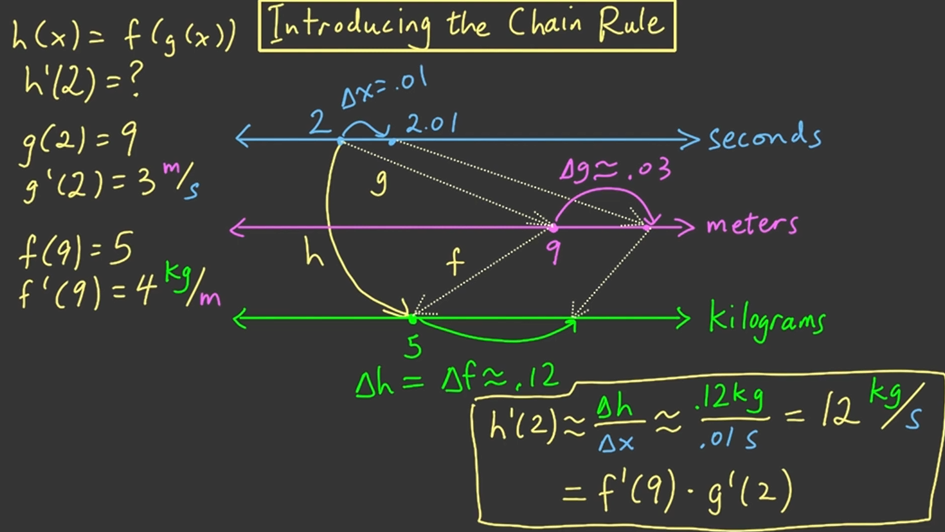 Introducing the Chain Rule
h(x) = f(g(x))
h'(2) = ?
g(2) = 9
g'(2) = 3 m/s
f(9) = 5
f'(9) = 4 kg/m
Δx = .01
2 2.01 seconds
g
Δg ≈ .03
meters
9
h f
kilograms
5
Δh = Δf ≈ .12
h'(2) ≈ Δh/Δx ≈ .12kg/.01 s = 12 kg/s
= f'(9) · g'(2)